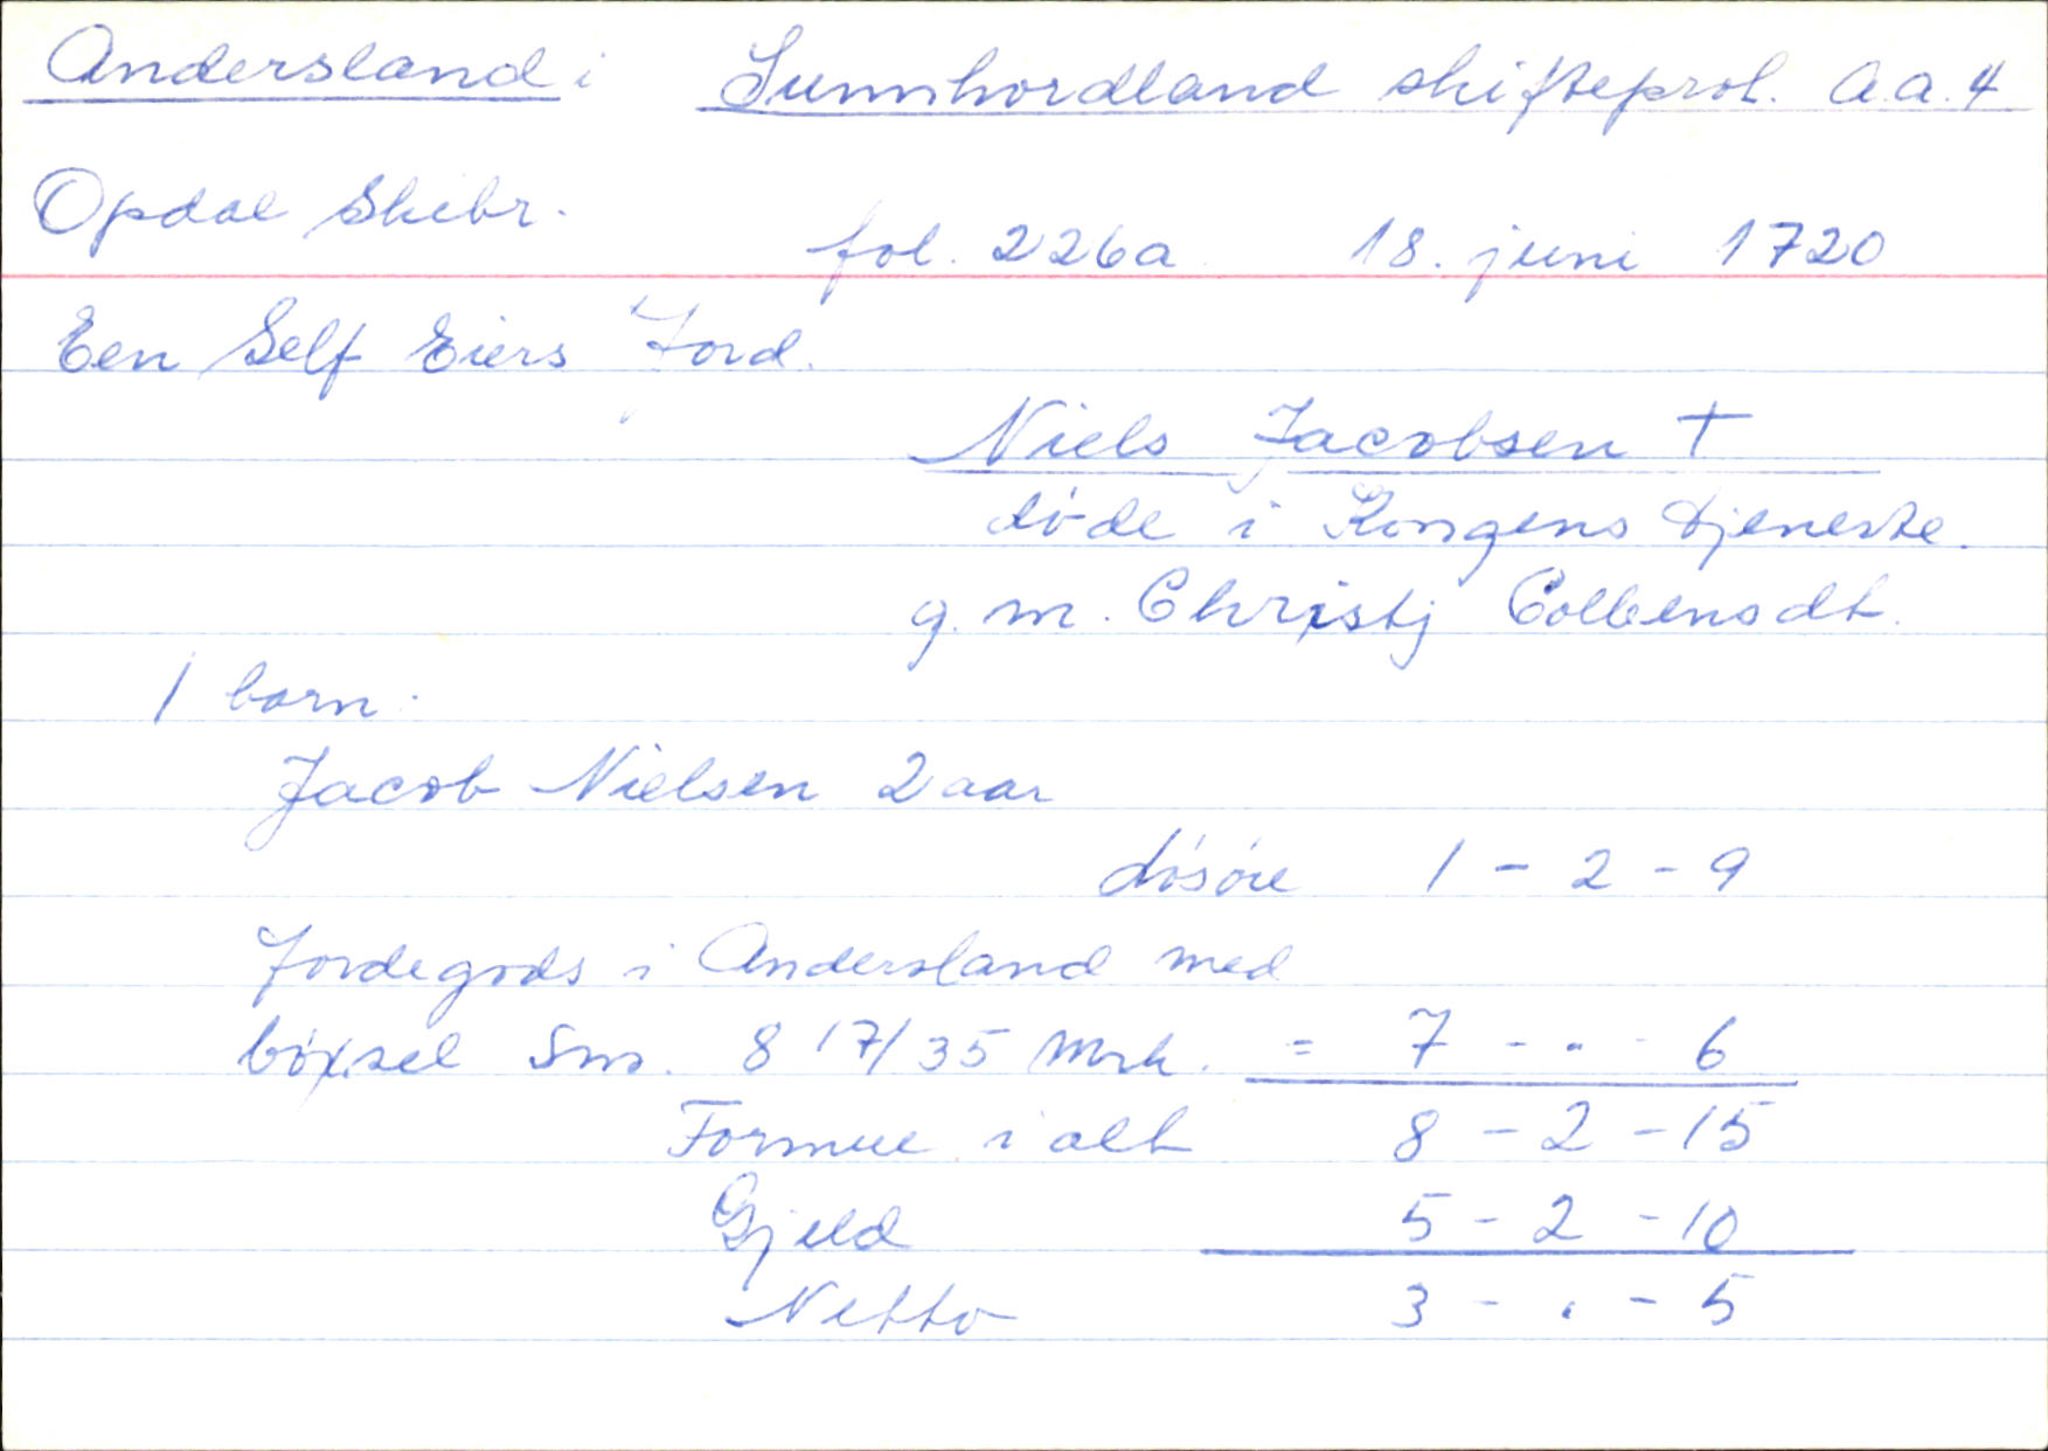 Andersland i Sunnhordland skifteprot. A.a.4
Opdal Skibr.
fol. 226a 18. juni 1720
Een Self Eiers Jord.
Niels Jacobsen †
døde i Kongens Tjeneste.
g. m. Christj Colbensdt.
1 barn:
Jacob Nielsen 2 aar
Løsøre 1 - 2 - 9
Jordegods i Andersland med
bøxsel Sm. 8 17/35 Mrk. = 7 - . - 6
Formue i alt 8 - 2 - 15
Gjeld 5 - 2 - 10
Netto 3 - . - 5